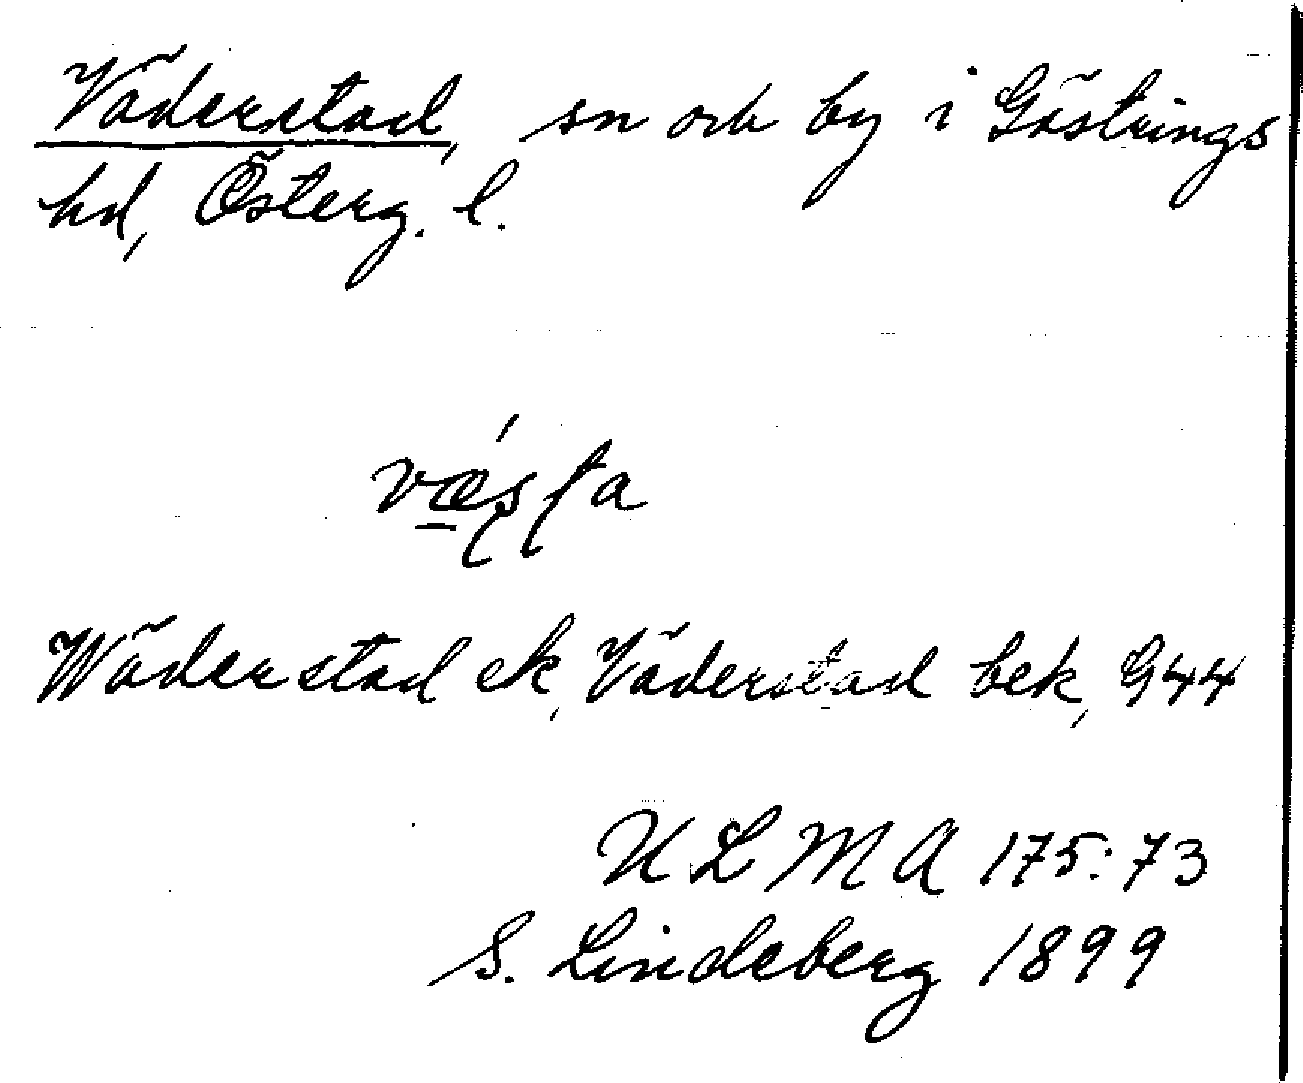 Väderstad, sn och by i Göstrings
hd, Österg. l.
Wäderstad ek, Väderstad bek, G44
ULMA 175:73
S. Lindeberg 1899